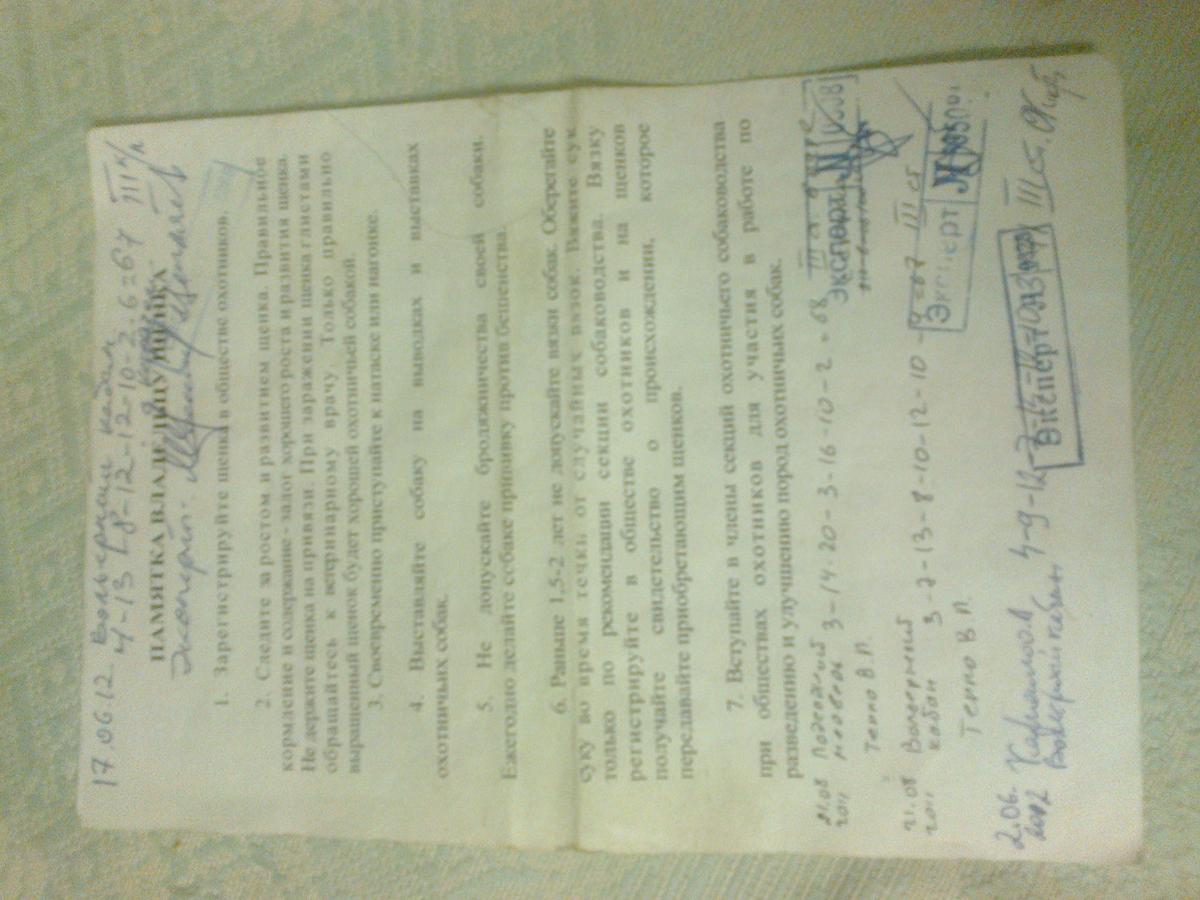 17.06.12 Вольерный кабан
4-13-8-12-12-10-2-6=67 III
ПАМЯТКА ВЛАДЕЛЬЦУ ЩЕНКА
Эксперт
1. Зарегистрируйте щенка в обществе охотников.
2. Следите за ростом и развитием щенка. Правильное
кормление и содержание - залог хорошего роста и развития щенка.
Не держите щенка на привязи. При заражении щенка глистами
обращайтесь к ветеринарному врачу. Только правильно
выращенный щенок будет хорошей охотничьей собакой.
3. Своевременно приступайте к натаске или нагонке.
4. Выставляйте собаку на выводках и выставках
охотничьих собак.
5. Не допускайте бродяжничества своей собаки.
Ежегодно делайте собаке прививку против бешенства.
6. Раньше 1,5-2 лет не допускайте вязки собак. Оберегайте
суку во время течки от случайных вязок. Вяжите сук
только по рекомендации секции собаководства. Вязку
регистрируйте в обществе охотников и на щенков
получайте свидетельство о происхождении, которое
передавайте приобретающим щенков.
7. Вступайте в члены секций охотничьего собаководства
при обществах охотников для участия в работе по
разведению и улучшению пород охотничьих собак.
21.08 2011 Подсадный медведь 3-14-20-3-16-10-2=68 III
Эксперт N
Теппо В.П.
21.08 2011 Вольерный кабан 3-7-13-8-10-12-10 III ст
Эксперт N
Теппо В.П.
2.06. Вольерный кабан 4-9-12 III ст.